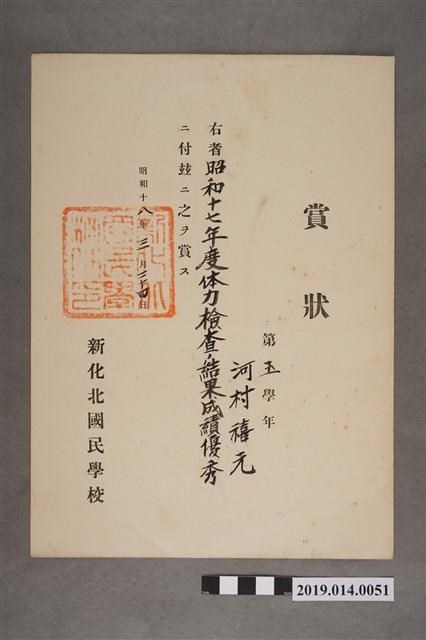 賞狀
第五學年
河村禧元
右者昭和十七年度体力檢查ノ結果成績優秀
ニ付玆ニ之ヲ賞ス
昭和十八年三月二十四日
新化北國民學校
2019.014.0051